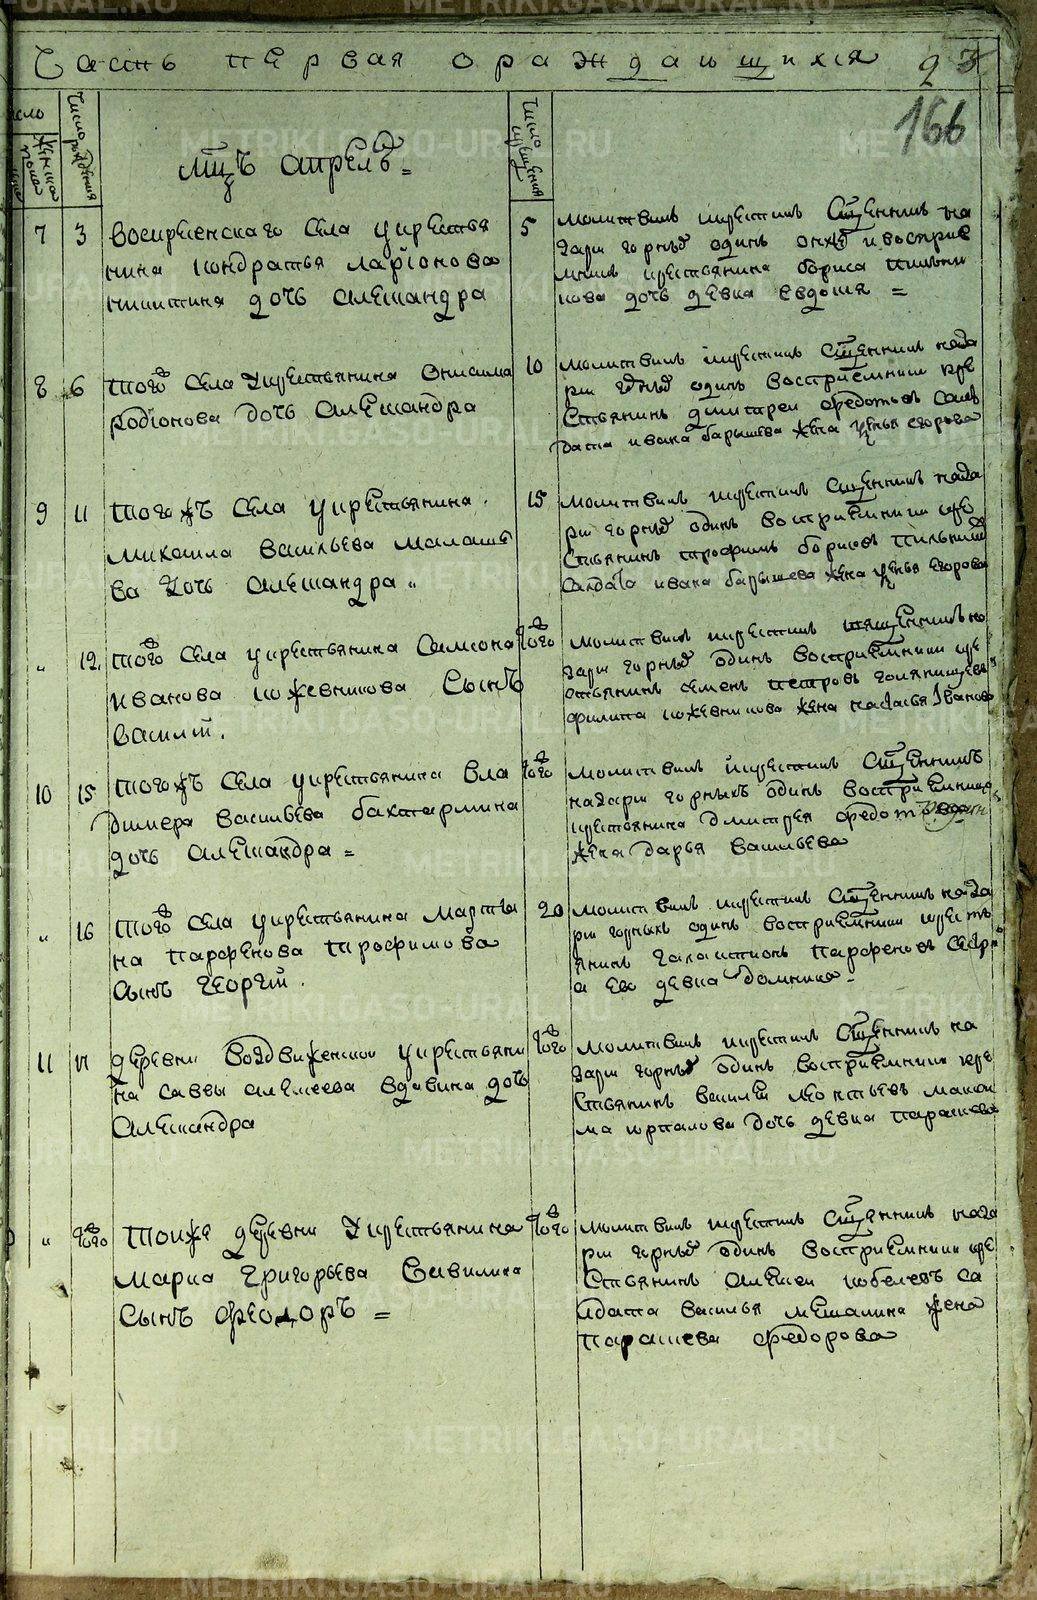 Часть первая о раждающихся 23
166
число
женска пола
Число рождения
мцъ апрель =
Число крещения
7 3 воскресенскаго села у крестья
нина кондратья ларіонова
никитина дочь александра
5 молитвилъ крестилъ сщенникъ на
зари горныхъ одинъ онже и воспріе
мникъ крестьянина бориса
дочь девка евдокия =
8 6 того села у крестьянина Онисима
Родіонова дочь александра
10 молитвилъ крестилъ сщенникъ наза
ри горныхъ одинъ воспріемники кре
стьянинъ димитреи федотовъ сол
дата ивана барышева жена егорова
9 11 того жъ села у крестьянина
михаила васильева малаше
ва дочь александра
15 молитвилъ крестилъ сщенникъ наза
ри горныхъ одинъ воспріемники кре
стьянинъ трофимъ борисовъ
салдата ивана барышева жена егорова
" 12. того села у крестьянина самсона
иванова кожевникова сынъ
василій.
того молитвилъ крестилъ сщенникъ на
зари горныхъ одинъ воспріемники кре
стьянинъ семенъ петровъ
филипа кожевникова жена настасья Іванова
10 15 того жъ села у крестьянина вла
димера васильева бахтармина
дочь александра =
того молитвилъ крестилъ сщенникъ
назари горныхъ одинъ воспріемница
крестьянина дмитрея федотова
жена дарья васильева
" 16 того села у крестьянина марты
на парфенова трофимова
сынъ георгій.
20 молитвилъ крестилъ сщенникъ наза
ри горныхъ одинъ воспріемники кресть
янинъ галактионъ парфеновъ сестр
а ево девка домника
11 17 деревни воздвиженской у крестьяни
на саввы алексеева вдовина дочь
александра
того молитвилъ крестилъ сщенникъ на
зари горныхъ одинъ воспріемники кре
стьянинъ василій леонтьевъ
дочь девка параскева
" того тойже деревни у крестьянина
марка григорьева вавилина
сынъ феодоръ =
того молитвилъ крестилъ сщенникъ наза
ри горныхъ одинъ воспріемники кре
стьянинъ алексеи кобелевъ са
лдата василья мешалкина жена
параскева федорова
METRIKI.GASO-URAL.RU